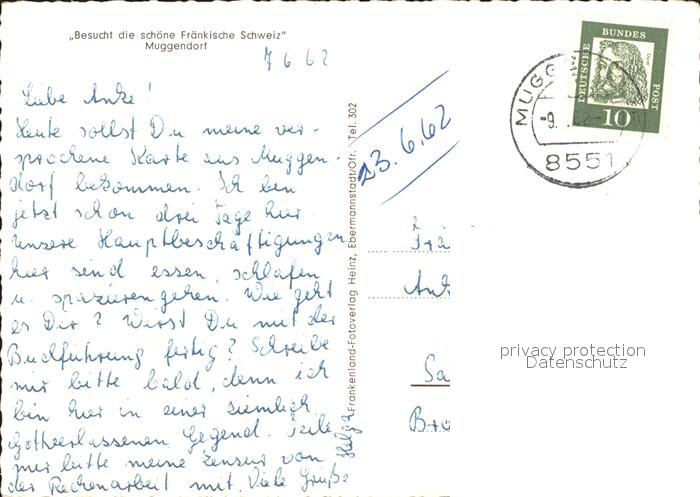 „Besucht die schöne Fränkische Schweiz"
Muggendorf
7 6 62
Liebe Anke!
Heute sollst Du meine ver-
sprochene Karte aus Muggen-
dorf bekommen. Ich bin
jetzt schon drei Tage hier.
Unsere Hauptbeschäftigungen
hier sind essen, schlafen
u. spazierengehen. Wie geht
es Dir? Wirst Du mit der
Buchführung fertig? Schreibe
mir bitte bald, denn ich
bin hier in einer ziemlich
Gottverlassenen Gegend. Teile
mir bitte meine Zensur von
der Rechenarbeit mit. Viele Grüße
Helga
Frankenland-Fotoverlag Heinz, Ebermannstadt/Ofr. Tel. 302
23.6.62
DEUTSCHE BUNDES POST
10
MUGG
-9.
8551
Frä
Ank
Sa
Bro
privacy protection
Datenschutz